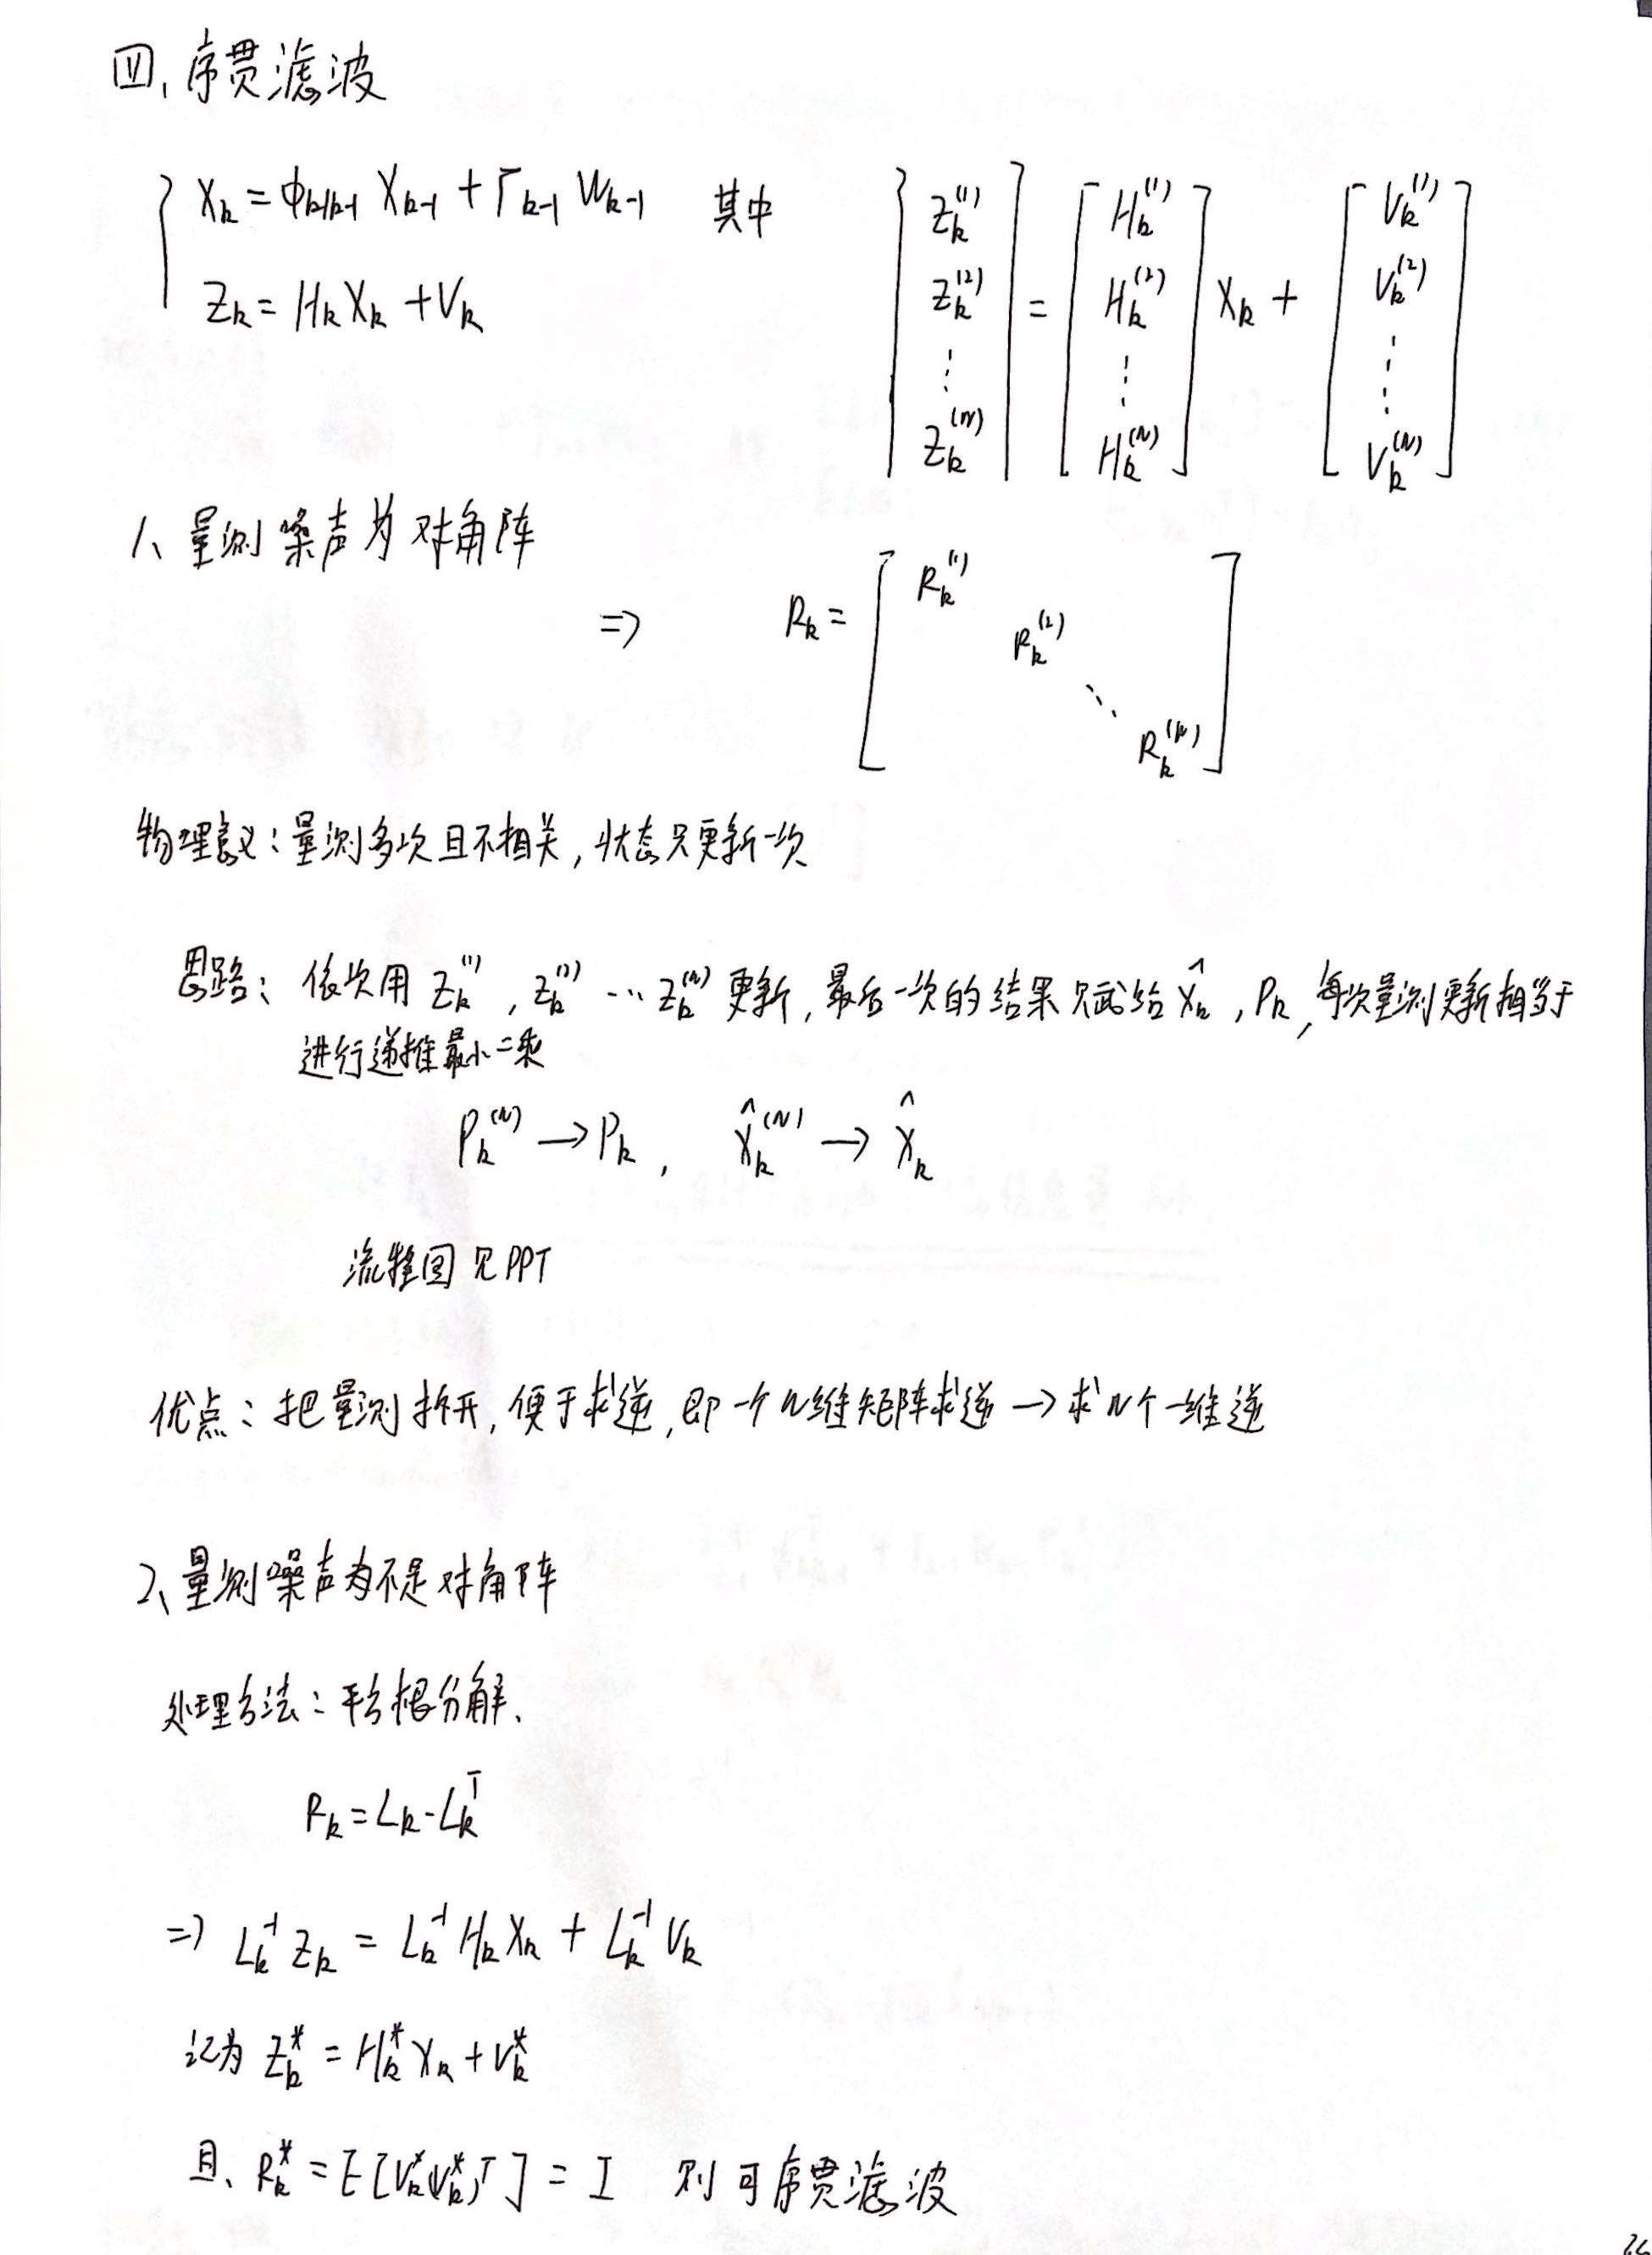 四、序贯滤波
{ X_k = Φ_{k/k-1} X_{k-1} + Γ_{k-1} W_{k-1} 其中 [Z_k^{(1)} Z_k^{(2)} ⋮ Z_k^{(N)}] = [H_k^{(1)} H_k^{(2)} ⋮ H_k^{(N)}] X_k + [V_k^{(1)} V_k^{(2)} ⋮ V_k^{(N)}]
Z_k = H_k X_k + V_k
1、量测噪声为对角阵
⇒ R_k = [R_k^{(1)} R_k^{(2)} ⋱ R_k^{(N)}]
物理意义：量测多次且不相关，状态只更新一次
思路：依次用 Z_k^{(1)}, Z_k^{(1)} … Z_k^{(N)} 更新，最后一次的结果只赋给 X̂_k，P_k，每次量测更新相当于
进行递推最小二乘
P_k^{(N)} → P_k， X̂_k^{(N)} → X̂_k
流程图见PPT
优点：把量测拆开，便于求逆，即一个N维矩阵求逆 → 求N个一维逆
2、量测噪声为不是对角阵
处理方法：平方根分解、
R_k = L_k·L_k^T
⇒ L_k^{-1} Z_k = L_k^{-1} H_k X_k + L_k^{-1} V_k
记为 Z_k^* = H_k^* X_k + V_k^*
且、R_k^* = E[V_k^*(V_k^*)^T] = I 则可序贯滤波